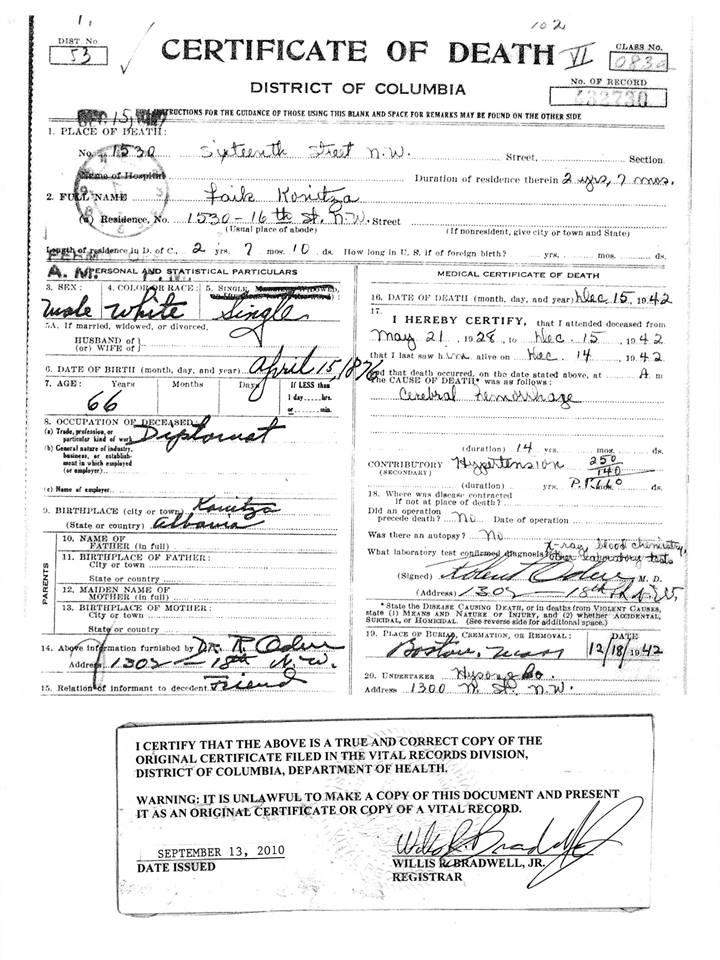 102
DIST No.
53
CERTIFICATE OF DEATH VI
CLASS No.
083a
DISTRICT OF COLUMBIA
No. OF RECORD
432730
INSTRUCTIONS FOR THE GUIDANCE OF THOSE USING THIS BLANK AND SPACE FOR REMARKS MAY BE FOUND ON THE OTHER SIDE
1. PLACE OF DEATH:
No. 1530 Sixteenth Street N.W. Street, Section
Name of Hospital Duration of residence therein 2 yrs, 7 mos.
2. FULL NAME Faik Konitza
(a) Residence, No. 1530 - 16th St. N.W. Street
(Usual place of abode) (If nonresident, give city or town and State)
Length of residence in D. of C., 2 yrs. 7 mos. 10 ds. How long in U. S. if of foreign birth? yrs. mos. ds.
A. M. PERSONAL AND STATISTICAL PARTICULARS
3. SEX: 4. COLOR OR RACE: 5. SINGLE, WIDOWED,
male White Single
5A. If married, widowed, or divorced,
HUSBAND of }
(or) WIFE of }
6. DATE OF BIRTH (month, day, and year) April 15, 1876
7. AGE: Years Months Days If LESS than
66 1 day......hrs.
or......min.
8. OCCUPATION OF DECEASED
(a) Trade, profession, or
particular kind of work Diplomat
(b) General nature of industry,
business, or establish-
ment in which employed
(or employer)
(c) Name of employer
9. BIRTHPLACE (city or town) Konitza
(State or country) Albania
PARENTS
10. NAME OF
FATHER (in full)
11. BIRTHPLACE OF FATHER:
City or town
State or country
12. MAIDEN NAME OF
MOTHER (in full)
13. BIRTHPLACE OF MOTHER:
City or town
State or country
14. Above information furnished by Dr. R. Oden
Address 1302 - 18th N.W.
15. Relation of informant to decedent Friend
MEDICAL CERTIFICATE OF DEATH
16. DATE OF DEATH (month, day, and year) Dec 15, 1942
17.
I HEREBY CERTIFY, that I attended deceased from
May 21, 1928, to Dec. 15, 1942
that I last saw him alive on Dec. 14, 1942
and that death occurred, on the date stated above, at A m
The CAUSE OF DEATH* was as follows:
Cerebral Hemorrhage
(duration) 14 yrs. mos. ds.
CONTRIBUTORY Hypertension 250
(SECONDARY) 140
(duration) yrs. mos. ds.
18. Where was disease contracted
if not at place of death?
Did an operation
precede death? No Date of operation
Was there an autopsy? No
x-ray, blood chemistry,
What laboratory test confirmed diagnosis? other laboratory tests
(Signed) Robert Oden M. D.
(Address) 1302 - 18th N.W.
* State the DISEASE CAUSING DEATH, or in deaths from VIOLENT CAUSES,
state (1) MEANS AND NATURE OF INJURY, and (2) whether ACCIDENTAL,
SUICIDAL, or HOMICIDAL. (See reverse side for additional space.)
19. PLACE OF BURIAL, CREMATION, OR REMOVAL: DATE
Boston, Mass 12/18/1942
20. UNDERTAKER Hysong Co.
Address 1300 N. St. N.W.
I CERTIFY THAT THE ABOVE IS A TRUE AND CORRECT COPY OF THE
ORIGINAL CERTIFICATE FILED IN THE VITAL RECORDS DIVISION,
DISTRICT OF COLUMBIA, DEPARTMENT OF HEALTH.
WARNING: IT IS UNLAWFUL TO MAKE A COPY OF THIS DOCUMENT AND PRESENT
IT AS AN ORIGINAL CERTIFICATE OR COPY OF A VITAL RECORD.
SEPTEMBER 13, 2010
DATE ISSUED
WILLIS R. BRADWELL, JR.
REGISTRAR